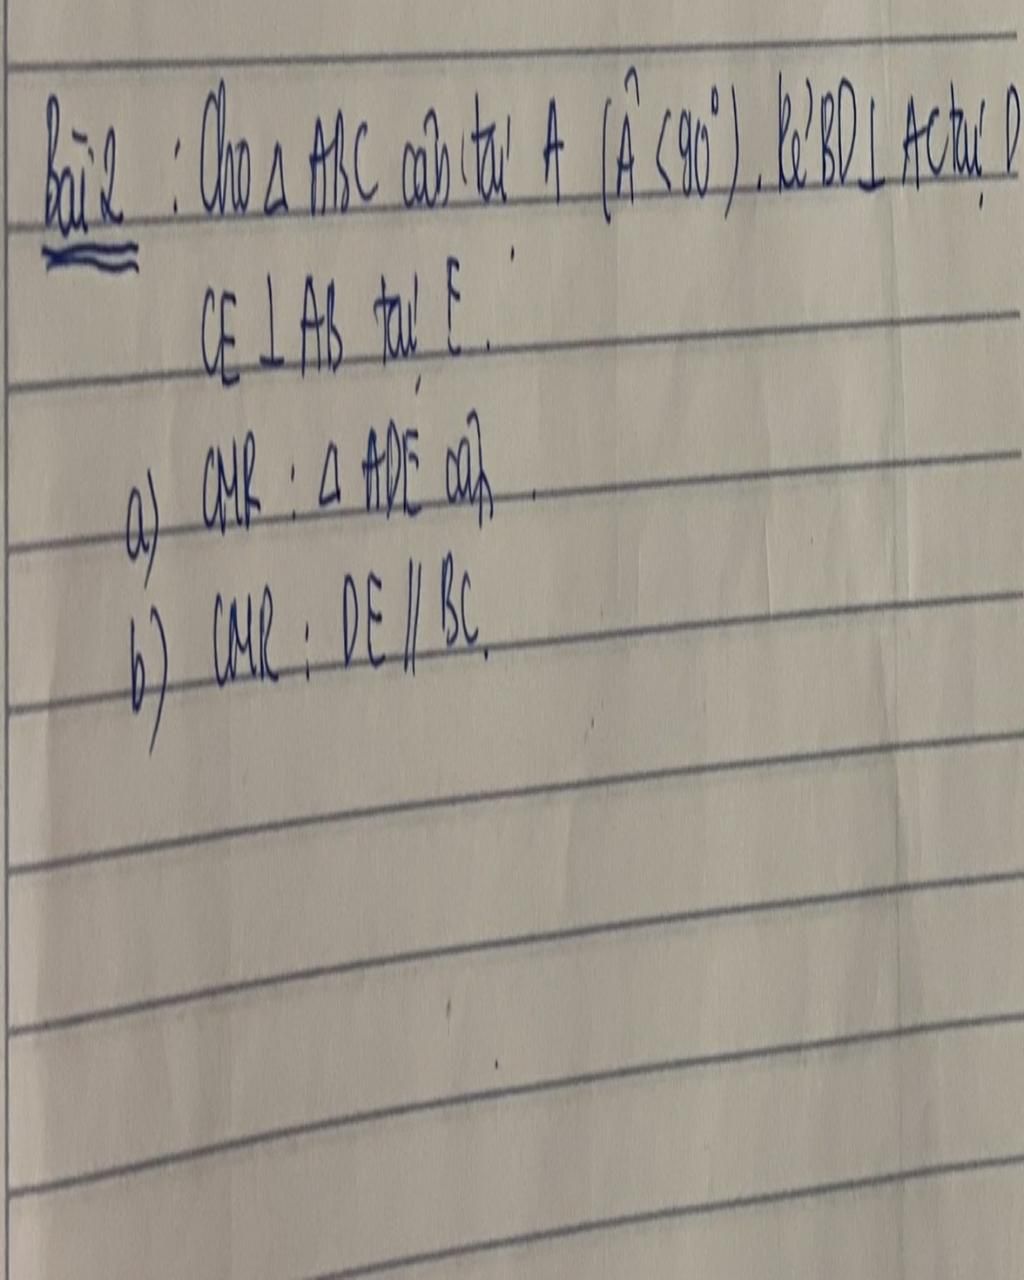 Bài 2 : Cho Δ ABC cân tại A (Â < 90°). Kẻ BD ⊥ AC tại D
CE ⊥ AB tại E.
a) CMR : Δ ADE cân.
b) CMR : DE // BC.